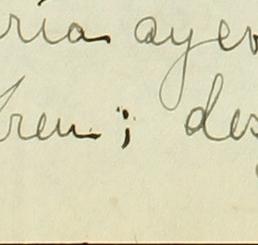 ría ayer
bren; des